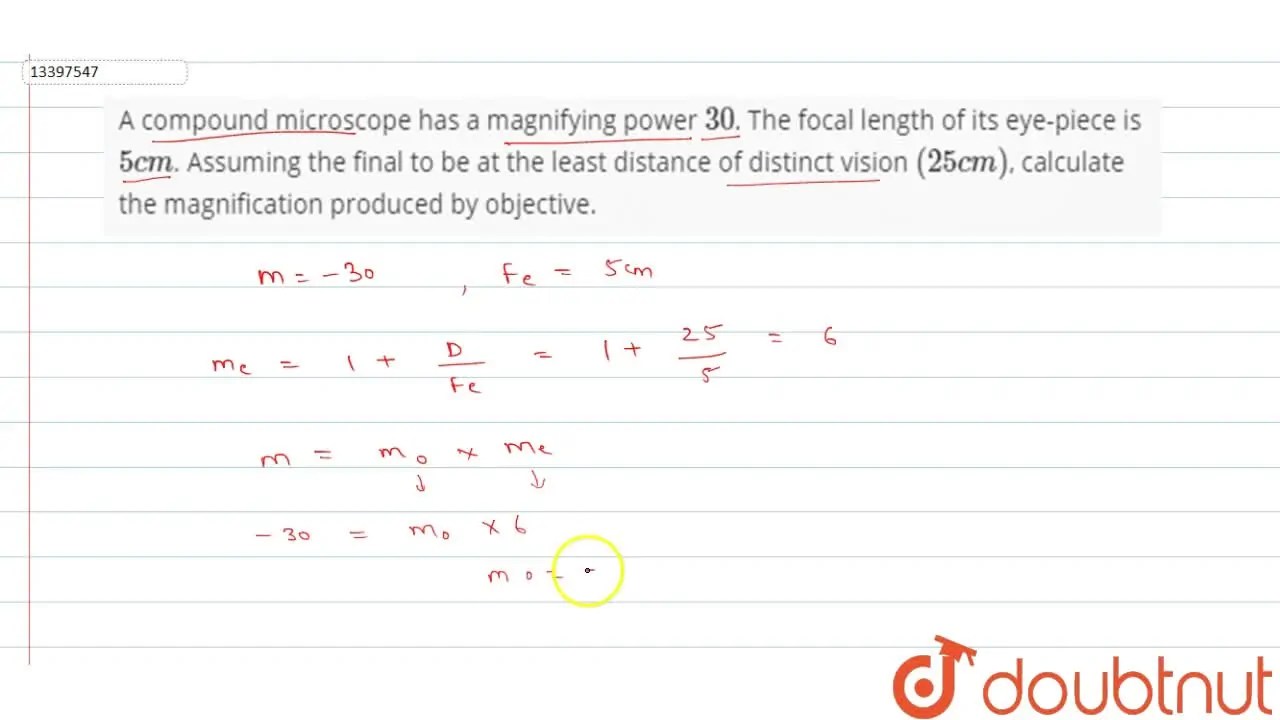 13397547
A compound microscope has a magnifying power 30. The focal length of its eye-piece is
5cm. Assuming the final to be at the least distance of distinct vision (25cm), calculate
the magnification produced by objective.
m = -30 , Fe = 5cm
me = 1 + D/Fe = 1 + 25/5 = 6
m = mo × me
↓ ↓
-30 = mo × 6
mo = -
doubtnut